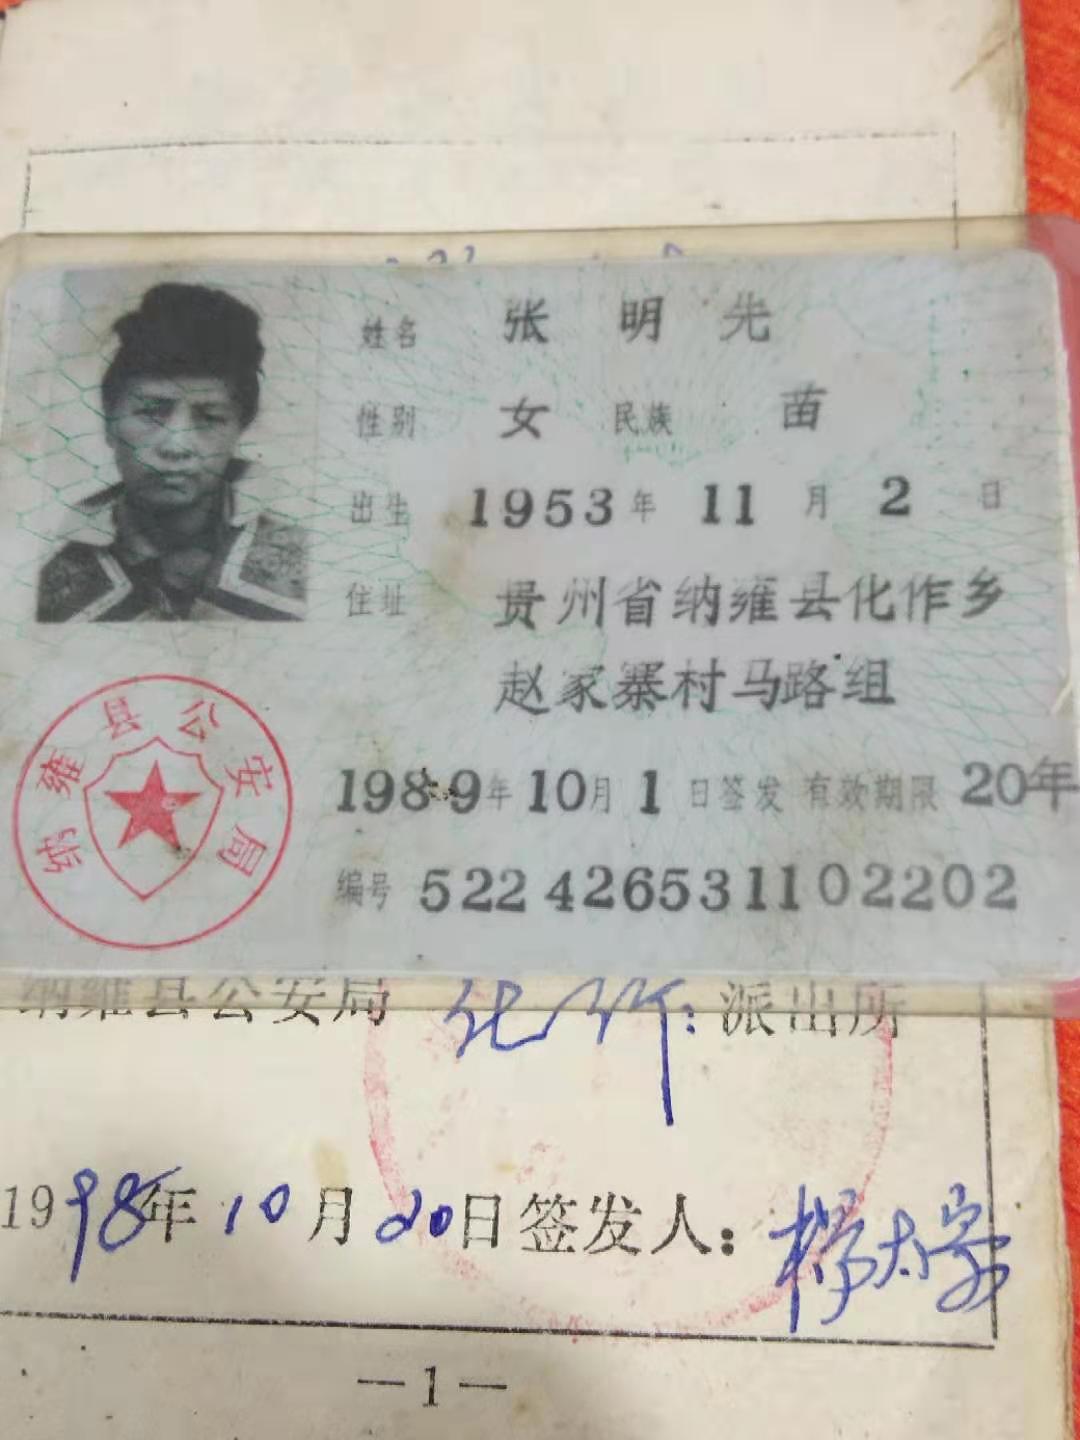 姓名 张明先
性别 女 民族 苗
出生 1953年 11月 2日
住址 贵州省纳雍县化作乡
赵家寨村马路组
纳雍县公安局
1989年10月1日签发 有效期限 20年
编号 522426531102202
纳雍县公安局 化作 派出所
1998年10月20日签发人：
—1—